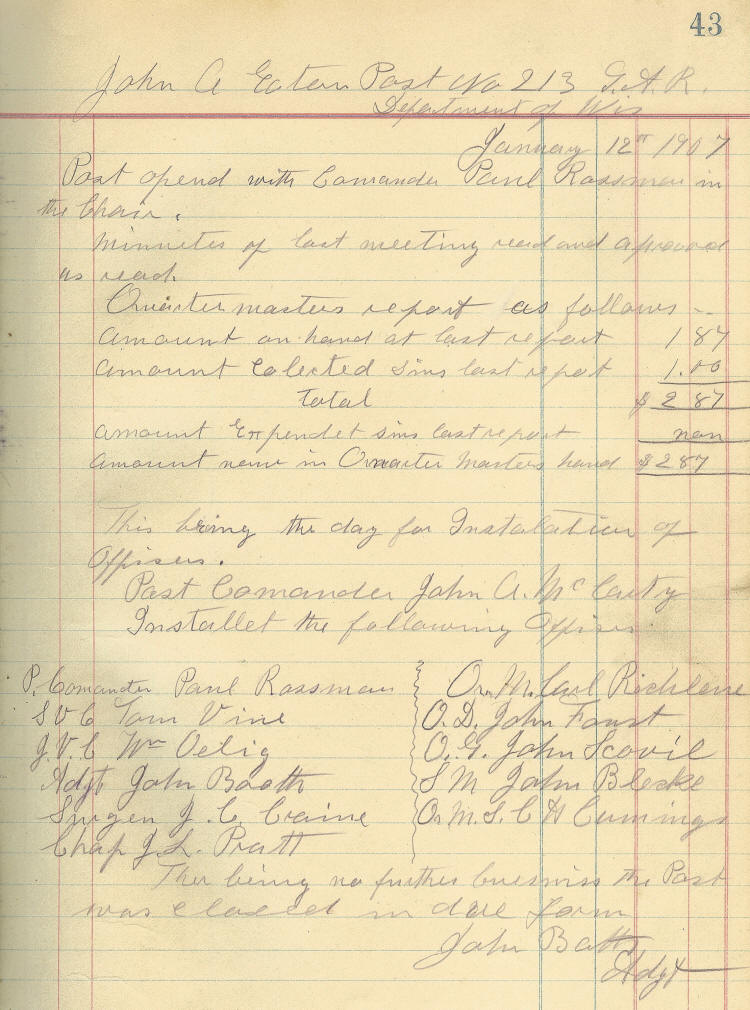 43
John A Eaton Post No 213 G.A.R.
Department of Wis
January 12" 1907
Post opend with Comander Paul Rossman in
the Chair.
Minnutes of last meeting read and aproved
as read.
Quartermasters report as follows --
Amount on hand at last report 1 87
Amount Colected sins last report 1.00
Total $ 2 87
Amount Expendet sins last report non
Amount now in Quarter Masters hand $ 2 87
This being the day for Instalation of
Offisers.
Past Comander John A. Mc Carty
Installet the following Offisers
P. Comander Paul Rossman Qr. M. Carl
S V C Tom Vine O. D. John Foust
J. V. C Wm Oelig O. G. John Scovil
Adjt John Booth S M John Bleske
Surgen J. C. Craine Qr M. S. C H Cumings
Chap J. L. Pratt
Ther being no further buesniss the Post
was closed in due form
John Adjt